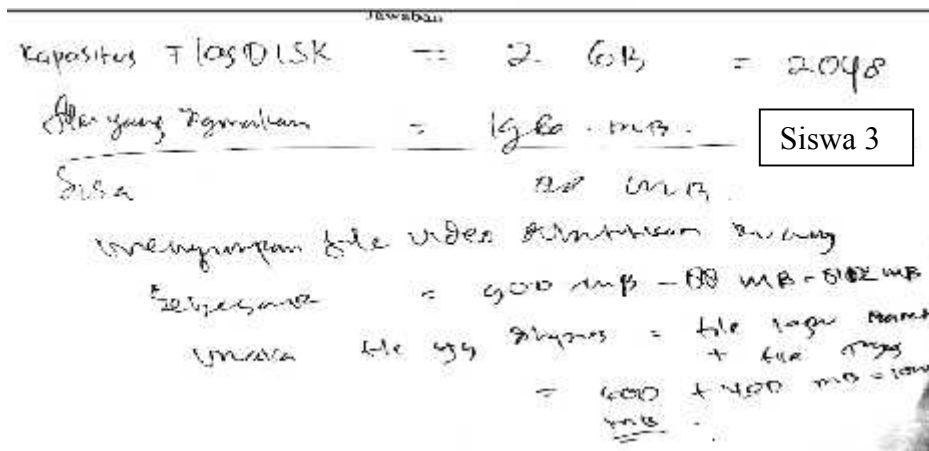 Jawaban
Kapasitas FlasDISK = 2 GB = 2048
File yang digunakan = 1960 MB.
Siswa 3
Sisa 88 MB.
menyimpan file video dibutuhkan ruang
sebesar = 900 MB - 88 MB = 812 MB
maka file yg dihapus = file lagu
+ file tugas
= 600 + 400 MB = 1000
MB.